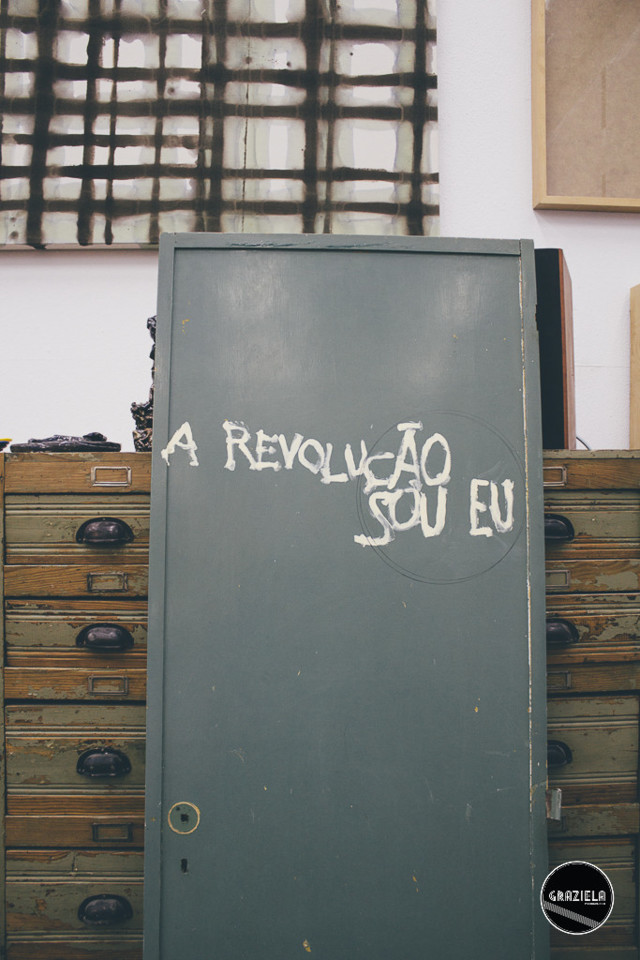 A REVOLUÇÃO
SOU EU
GRAZIELA